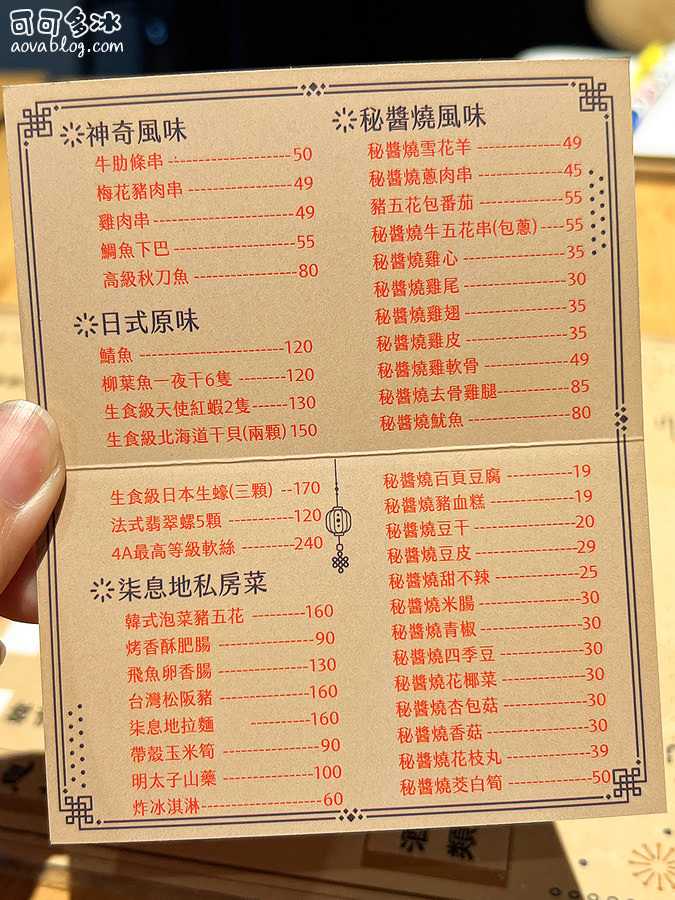 可可多冰
aovablog.com
神奇風味
牛肋條串 50
梅花豬肉串 49
雞肉串 49
鯛魚下巴 55
高級秋刀魚 80
日式原味
鯖魚 120
柳葉魚一夜干6隻 120
生食級天使紅蝦2隻 130
生食級北海道干貝(兩顆) 150
生食級日本生蠔(三顆) 170
法式翡翠螺5顆 120
4A最高等級軟絲 240
柒息地私房菜
韓式泡菜豬五花 160
烤香酥肥腸 90
飛魚卵香腸 130
台灣松阪豬 160
柒息地拉麵 160
帶殼玉米筍 90
明太子山藥 100
炸冰淇淋 60
秘醬燒風味
秘醬燒雪花羊 49
秘醬燒蔥肉串 45
豬五花包番茄 55
秘醬燒牛五花串(包蔥) 55
秘醬燒雞心 35
秘醬燒雞尾 30
秘醬燒雞翅 35
秘醬燒雞皮 35
秘醬燒雞軟骨 49
秘醬燒去骨雞腿 85
秘醬燒魷魚 80
秘醬燒百頁豆腐 19
秘醬燒豬血糕 19
秘醬燒豆干 20
秘醬燒豆皮 29
秘醬燒甜不辣 25
秘醬燒米腸 30
秘醬燒青椒 30
秘醬燒四季豆 30
秘醬燒花椰菜 30
秘醬燒杏包菇 30
秘醬燒香菇 30
秘醬燒花枝丸 39
秘醬燒茭白筍 50
酒類